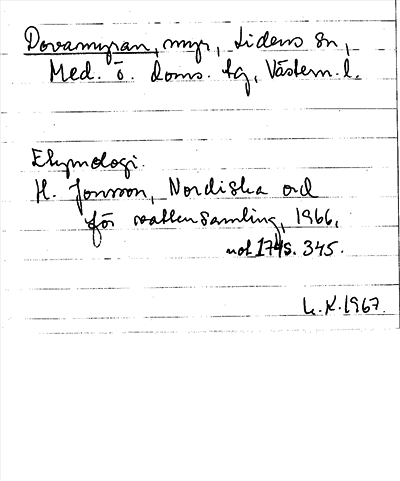 Dovamyran, myr, Lidens sn,
Med. ö. doms. tg, Västern. l.
Etymologi.
H. Jonsson, Nordiska ord
för vattensamling, 1966,
not 174 s. 345.
L.K. 1967.